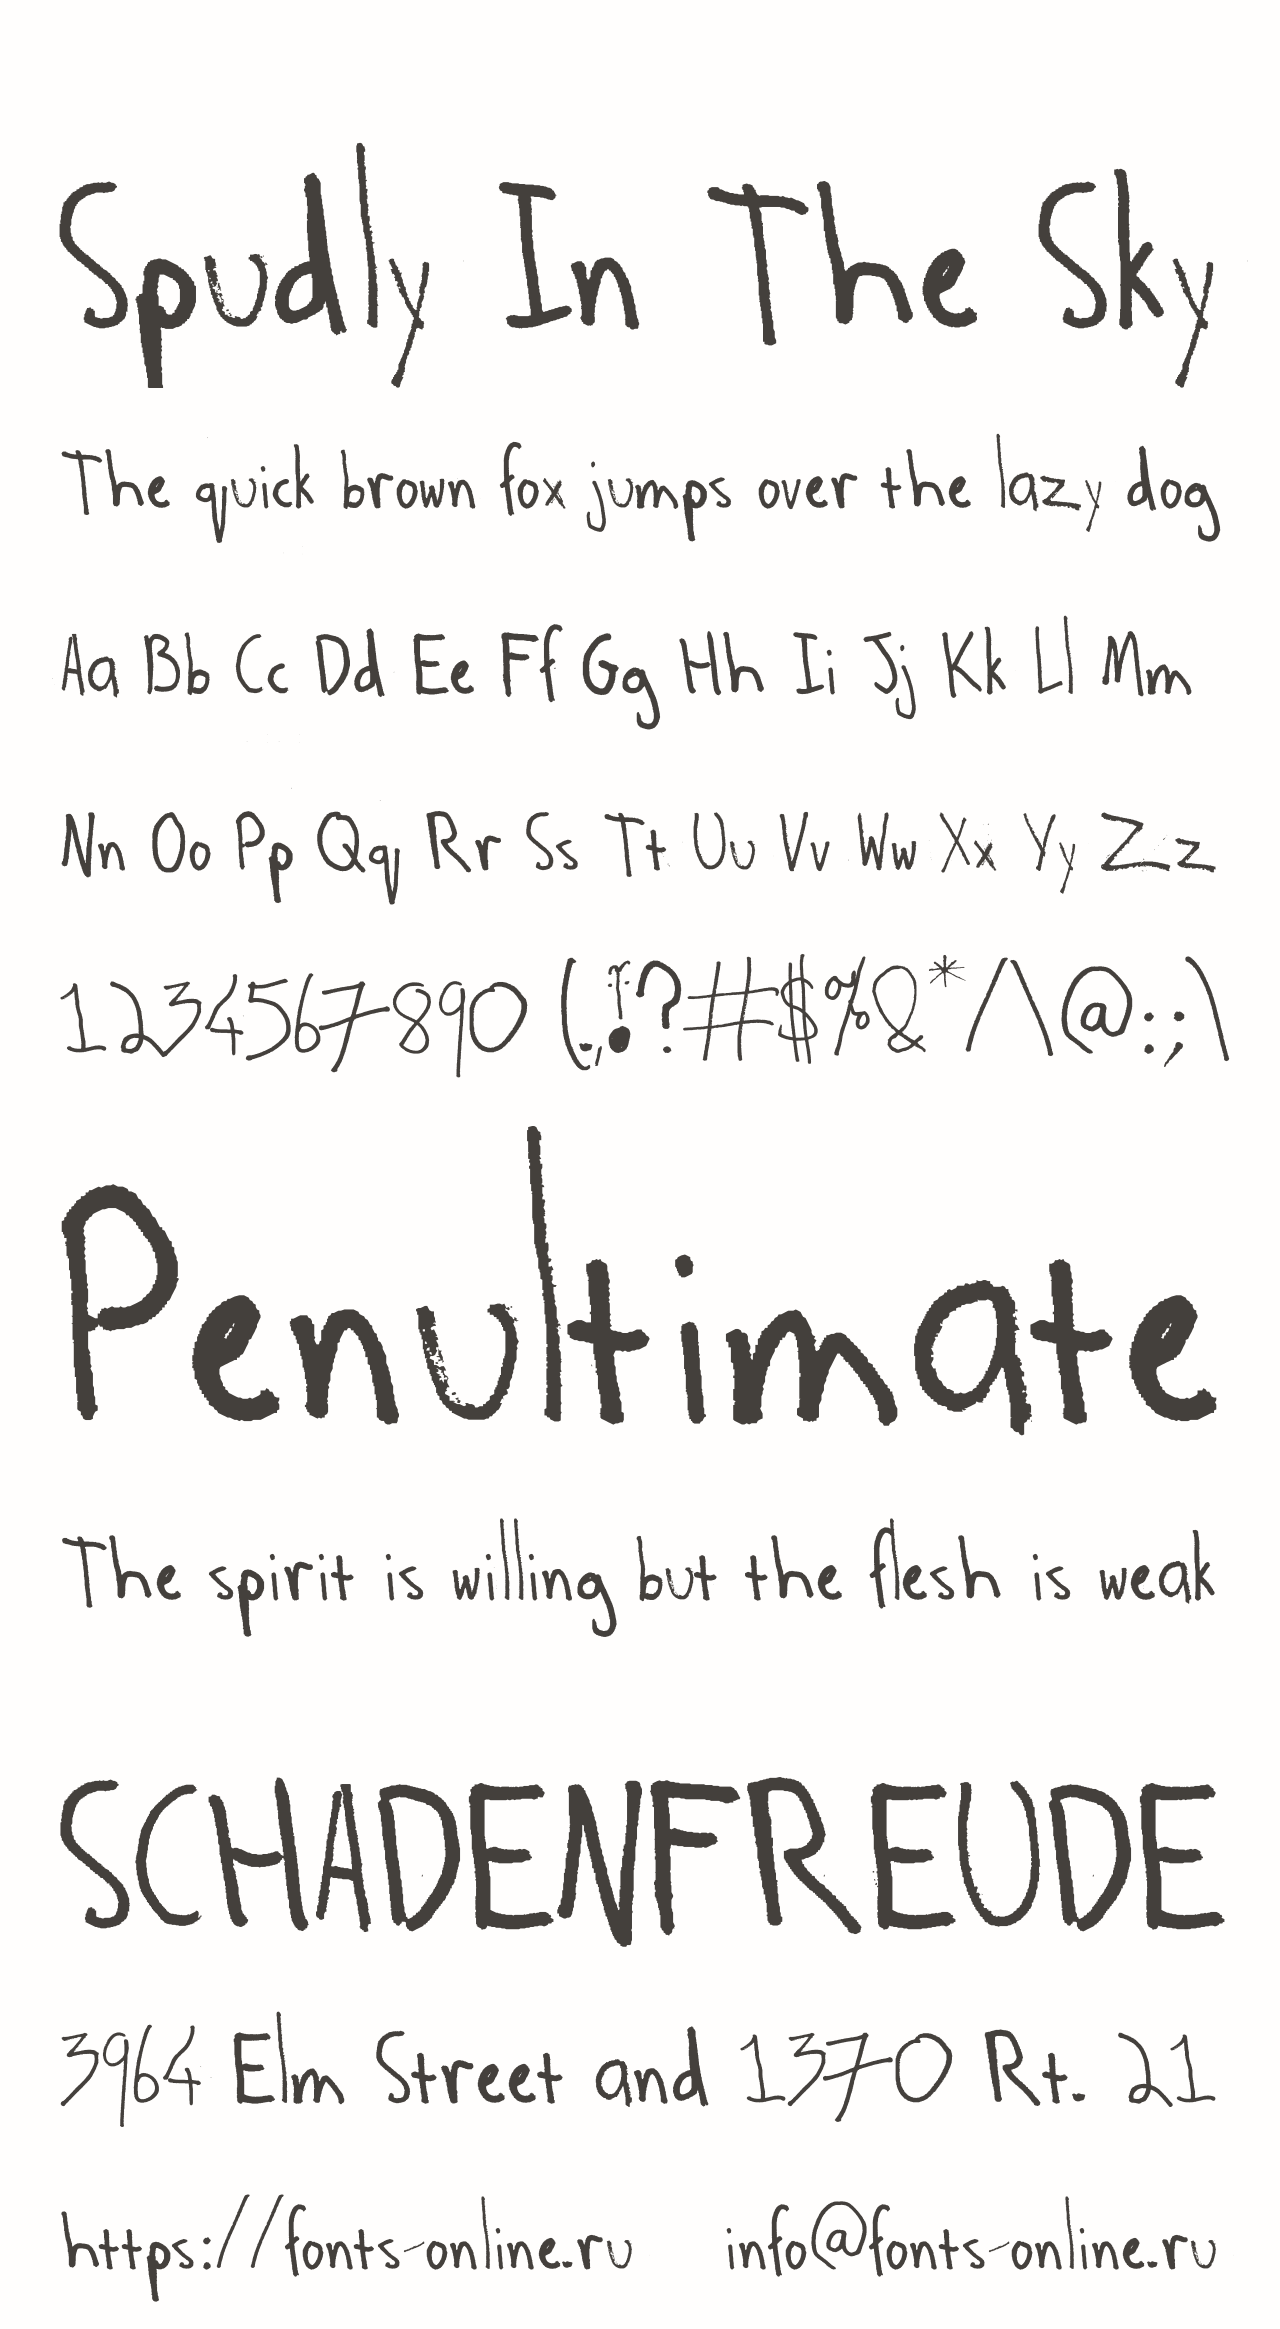 Spudly In The Sky
The quick brown fox jumps over the lazy dog
Aa Bb Cc Dd Ee Ff Gg Hh Ii Jj Kk Ll Mm
Nn Oo Pp Qq Rr Ss Tt Uu Vv Ww Xx Yy Zz
1234567890 (.,!?#$%&*/\@:;\
Penultimate
The spirit is willing but the flesh is weak
SCHADENFREUDE
3964 Elm Street and 1370 Rt. 21
https://fonts-online.ru info@fonts-online.ru